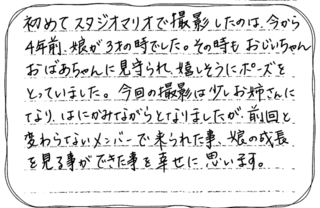 初めてスタジオマリオで撮影したのは、今から
4年前、娘が3才の時でした。その時も おじいちゃん
おばあちゃんに見守られ、嬉しそうにポーズを
とっていました。今回の撮影は少しお姉さんに
なり、はにかみながらとなりましたが、前回と
変わらないメンバーで来られた事、娘の成長
を見る事ができた事を幸せに思います。